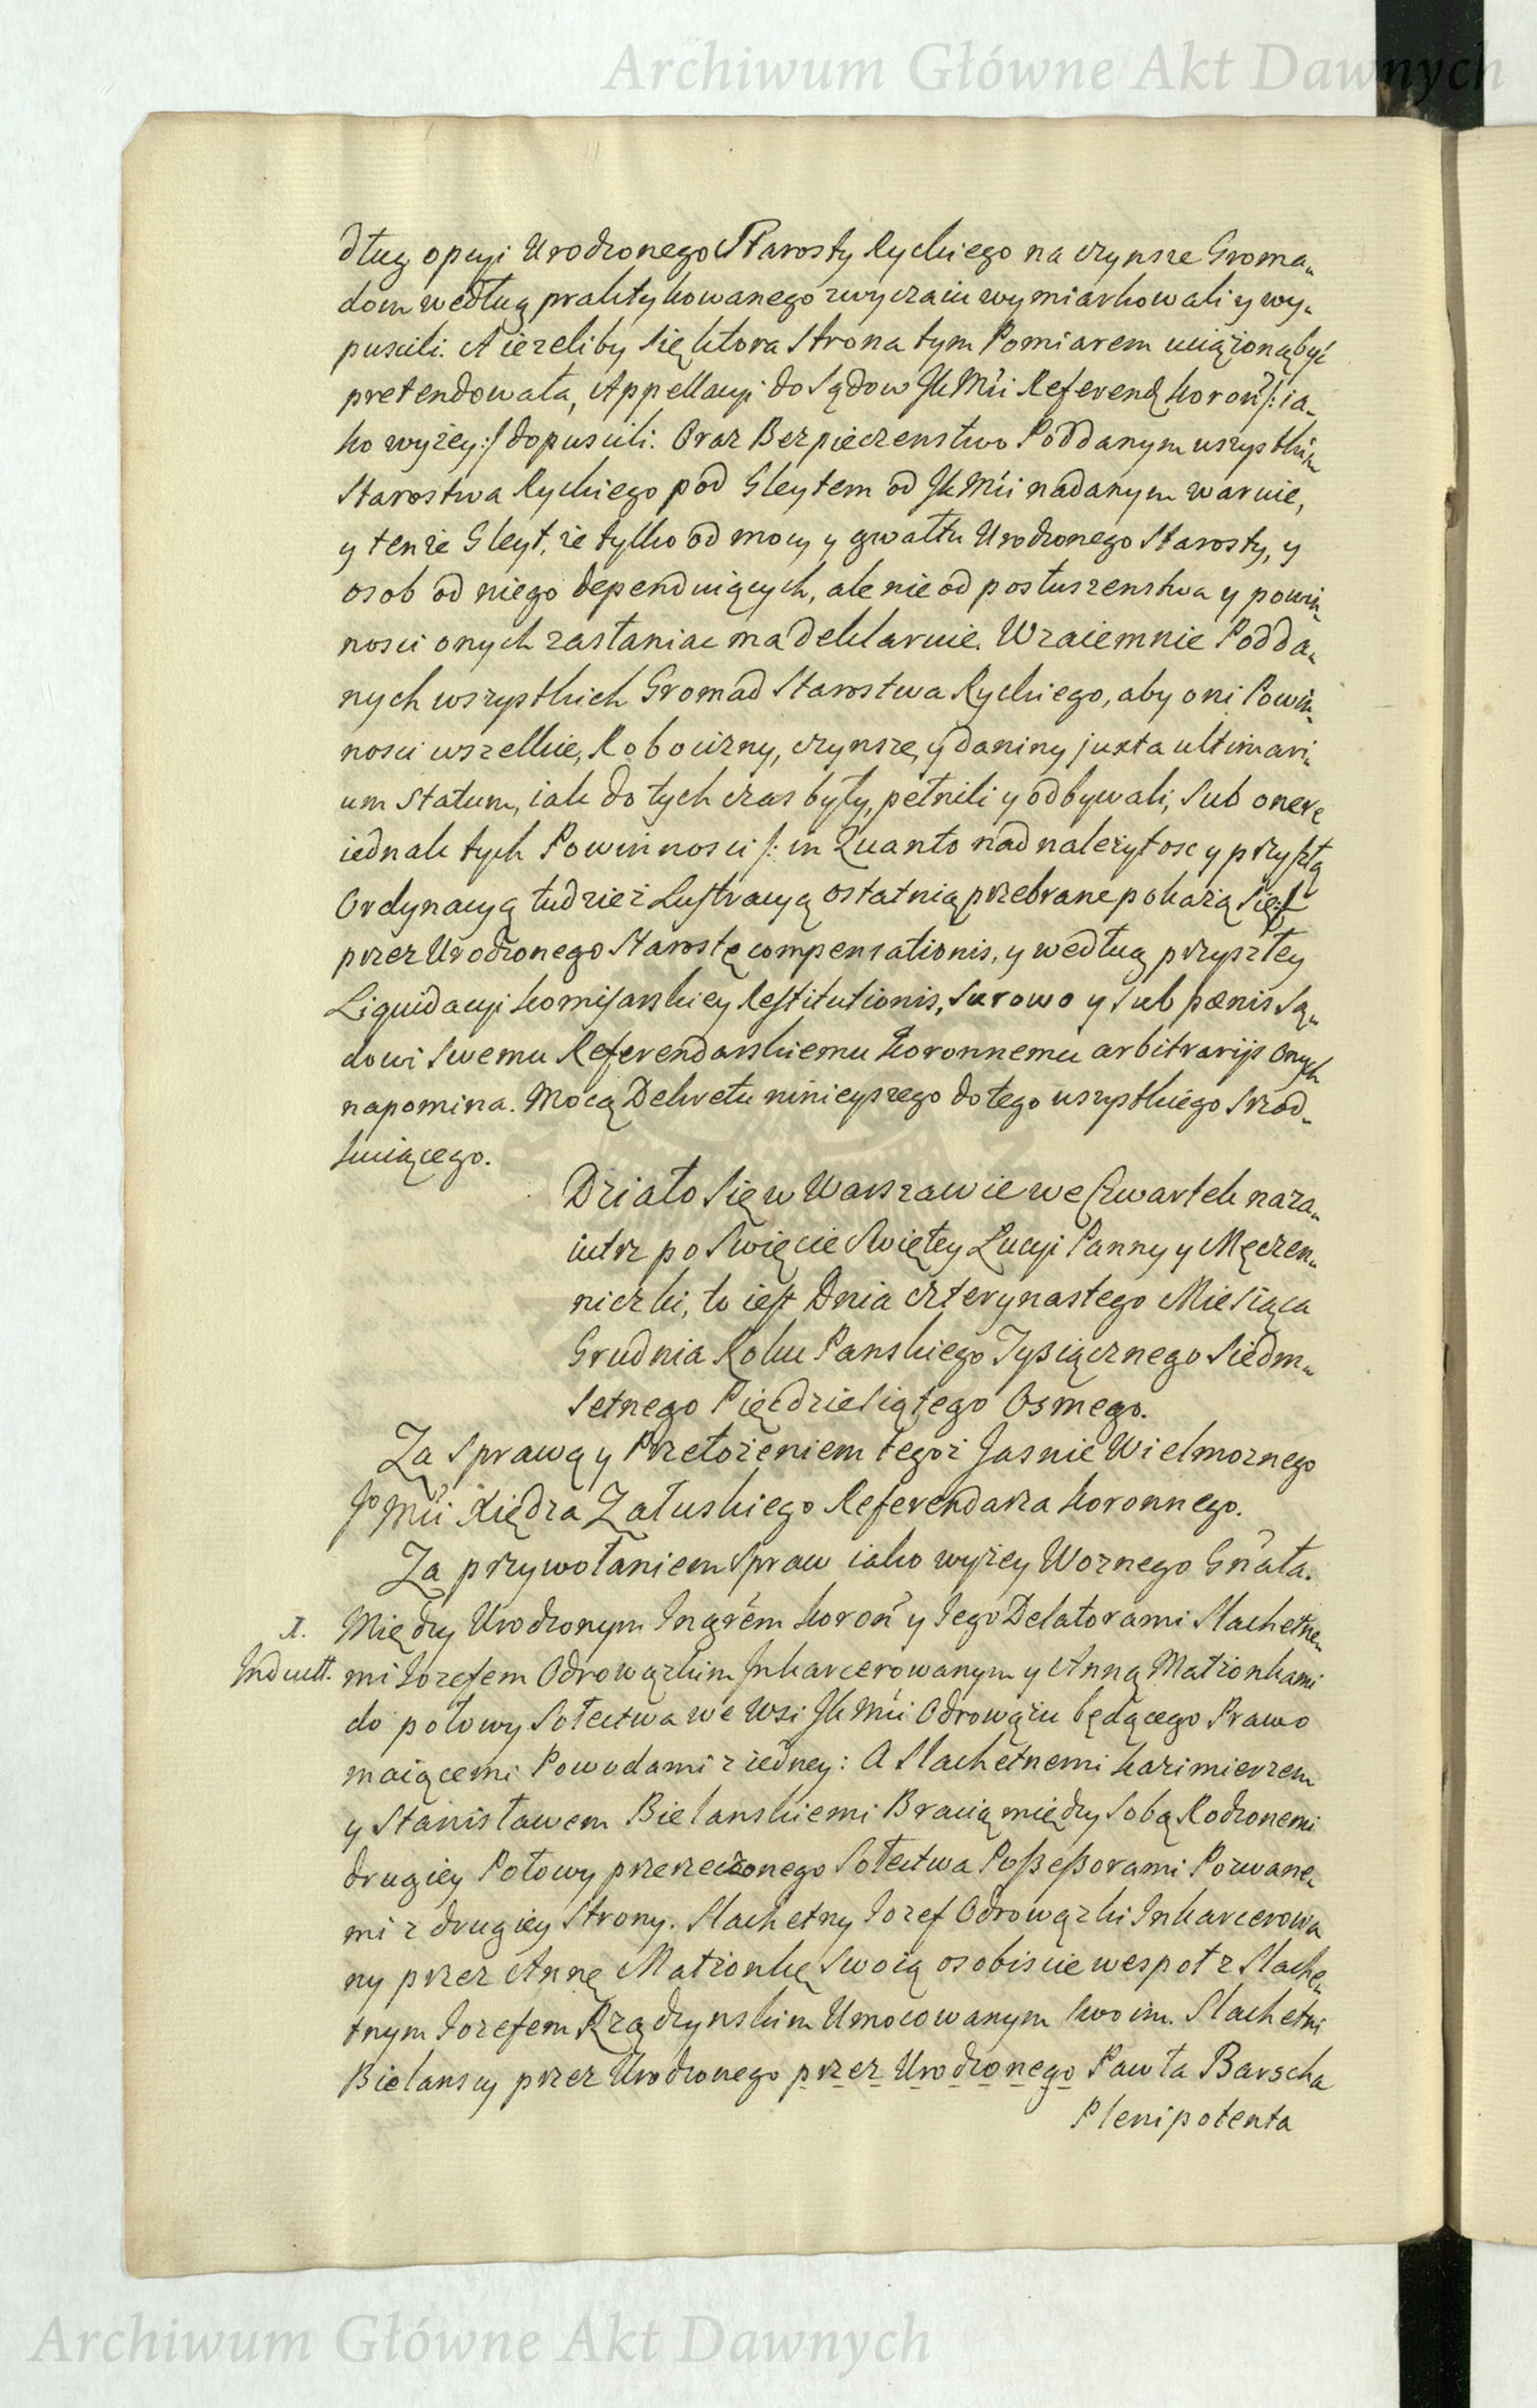 Archiwum Główne Akt Dawnych
dług opcyi Urodzonego Starosty Ryckiego na czynsze Groma„
dom według praktykowanego zwyczaiu wymiarkowali y wy„
puscili. A iezeliby się ktora Strona tym Pomiarem uciążoną być
pretendowała, Appellacyi do Sądow JK Mći Referend. Koroñ /: ia„
ko wyżey :/ dopuscili. Oraz Bezpieczenstwo Poddanym wszystkim
Starostwa Ryckiego pod Gleytem od JK Mći nadanym waruie,
y tenże Gleyt, że tylko od mocy y gwałtu Urodzonego Starosty, y
osob od niego dependuiących, ale nie od posłuszenstwa y powin„
nosci onych zasłaniac ma deklaruie. Wzaiemnie Podda„
nych wszystkich Gromad Starostwa Ryckiego, aby oni Powin„
nosci wszelkie, Robocizny, czynsze, y daniny juxta ultimari„
um Statum, iak do tych czas były, pełnili y odbywali, Sub onere
iednak tych Powinnosci /: in Quanto nad nalezytosc y przyszłą
Ordynacyą tudzież Lustracyą ostatnią przebrane pokażą się :/
przez Urodzonego Starostę compensationis, y według przyszłey
Liquidacyi Komisarskiey Restitutionis, Surowo y Sub pœnis Są„
dowi Swemu Referendarskiemu Koronnemu arbitrarijs onych
napomina. Mocą Dekretu ninieyszego do tego wszystkiego Srzod„
kuiącego.
Działo Się w Warszawie we Czwartek naza„
iutrz po Swięcie Swiętey Łucyi Panny y Męczen„
niczki, to iest Dnia czterynastego Miesiąca
Grudnia Roku Panskiego Tysiącznego Siedm„
Setnego Pięcdziesiątego Osmego.
Za Sprawą y Przełożeniem tegoż Jasnie Wielmoznego
Jo Mći Xiędza Załuskiego Referendarza Koronnego.
Za przywołaniem Spraw iako wyżey Woznego Gñała.
1. Między Urodzonym Jngrem Koroñ y Jego Delatorami Slachetne„
Jnducit. mi Jozefem Odrowązkim Jnkarcerowanym y Anną Małzonkami
do połowy Sołectwa we Wsi JK Mći Odrowążu będącego Prawo
maiącemi Powodami z iedney: A Slachetnemi Kazimierzem
y Stanisławem Bielanskiemi Bracią między Sobą Rodzonemi
drugiey Połowy przerzeczonego Sołectwa Possessorami Pozwane„
mi z drugiey Strony. Slachetny Jozef Odrowązki Jnkarcerowa
ny przez Annę Małzonkę Swoią osobiscie wespoł z Slache„
tnym Jozefem Rządzynskim Umocowanym Swoim. Slachetni
Bielanscy przez Urodzonego przez Urodzonego Pawła Barscha
Plenipotenta
Archiwum Główne Akt Dawnych